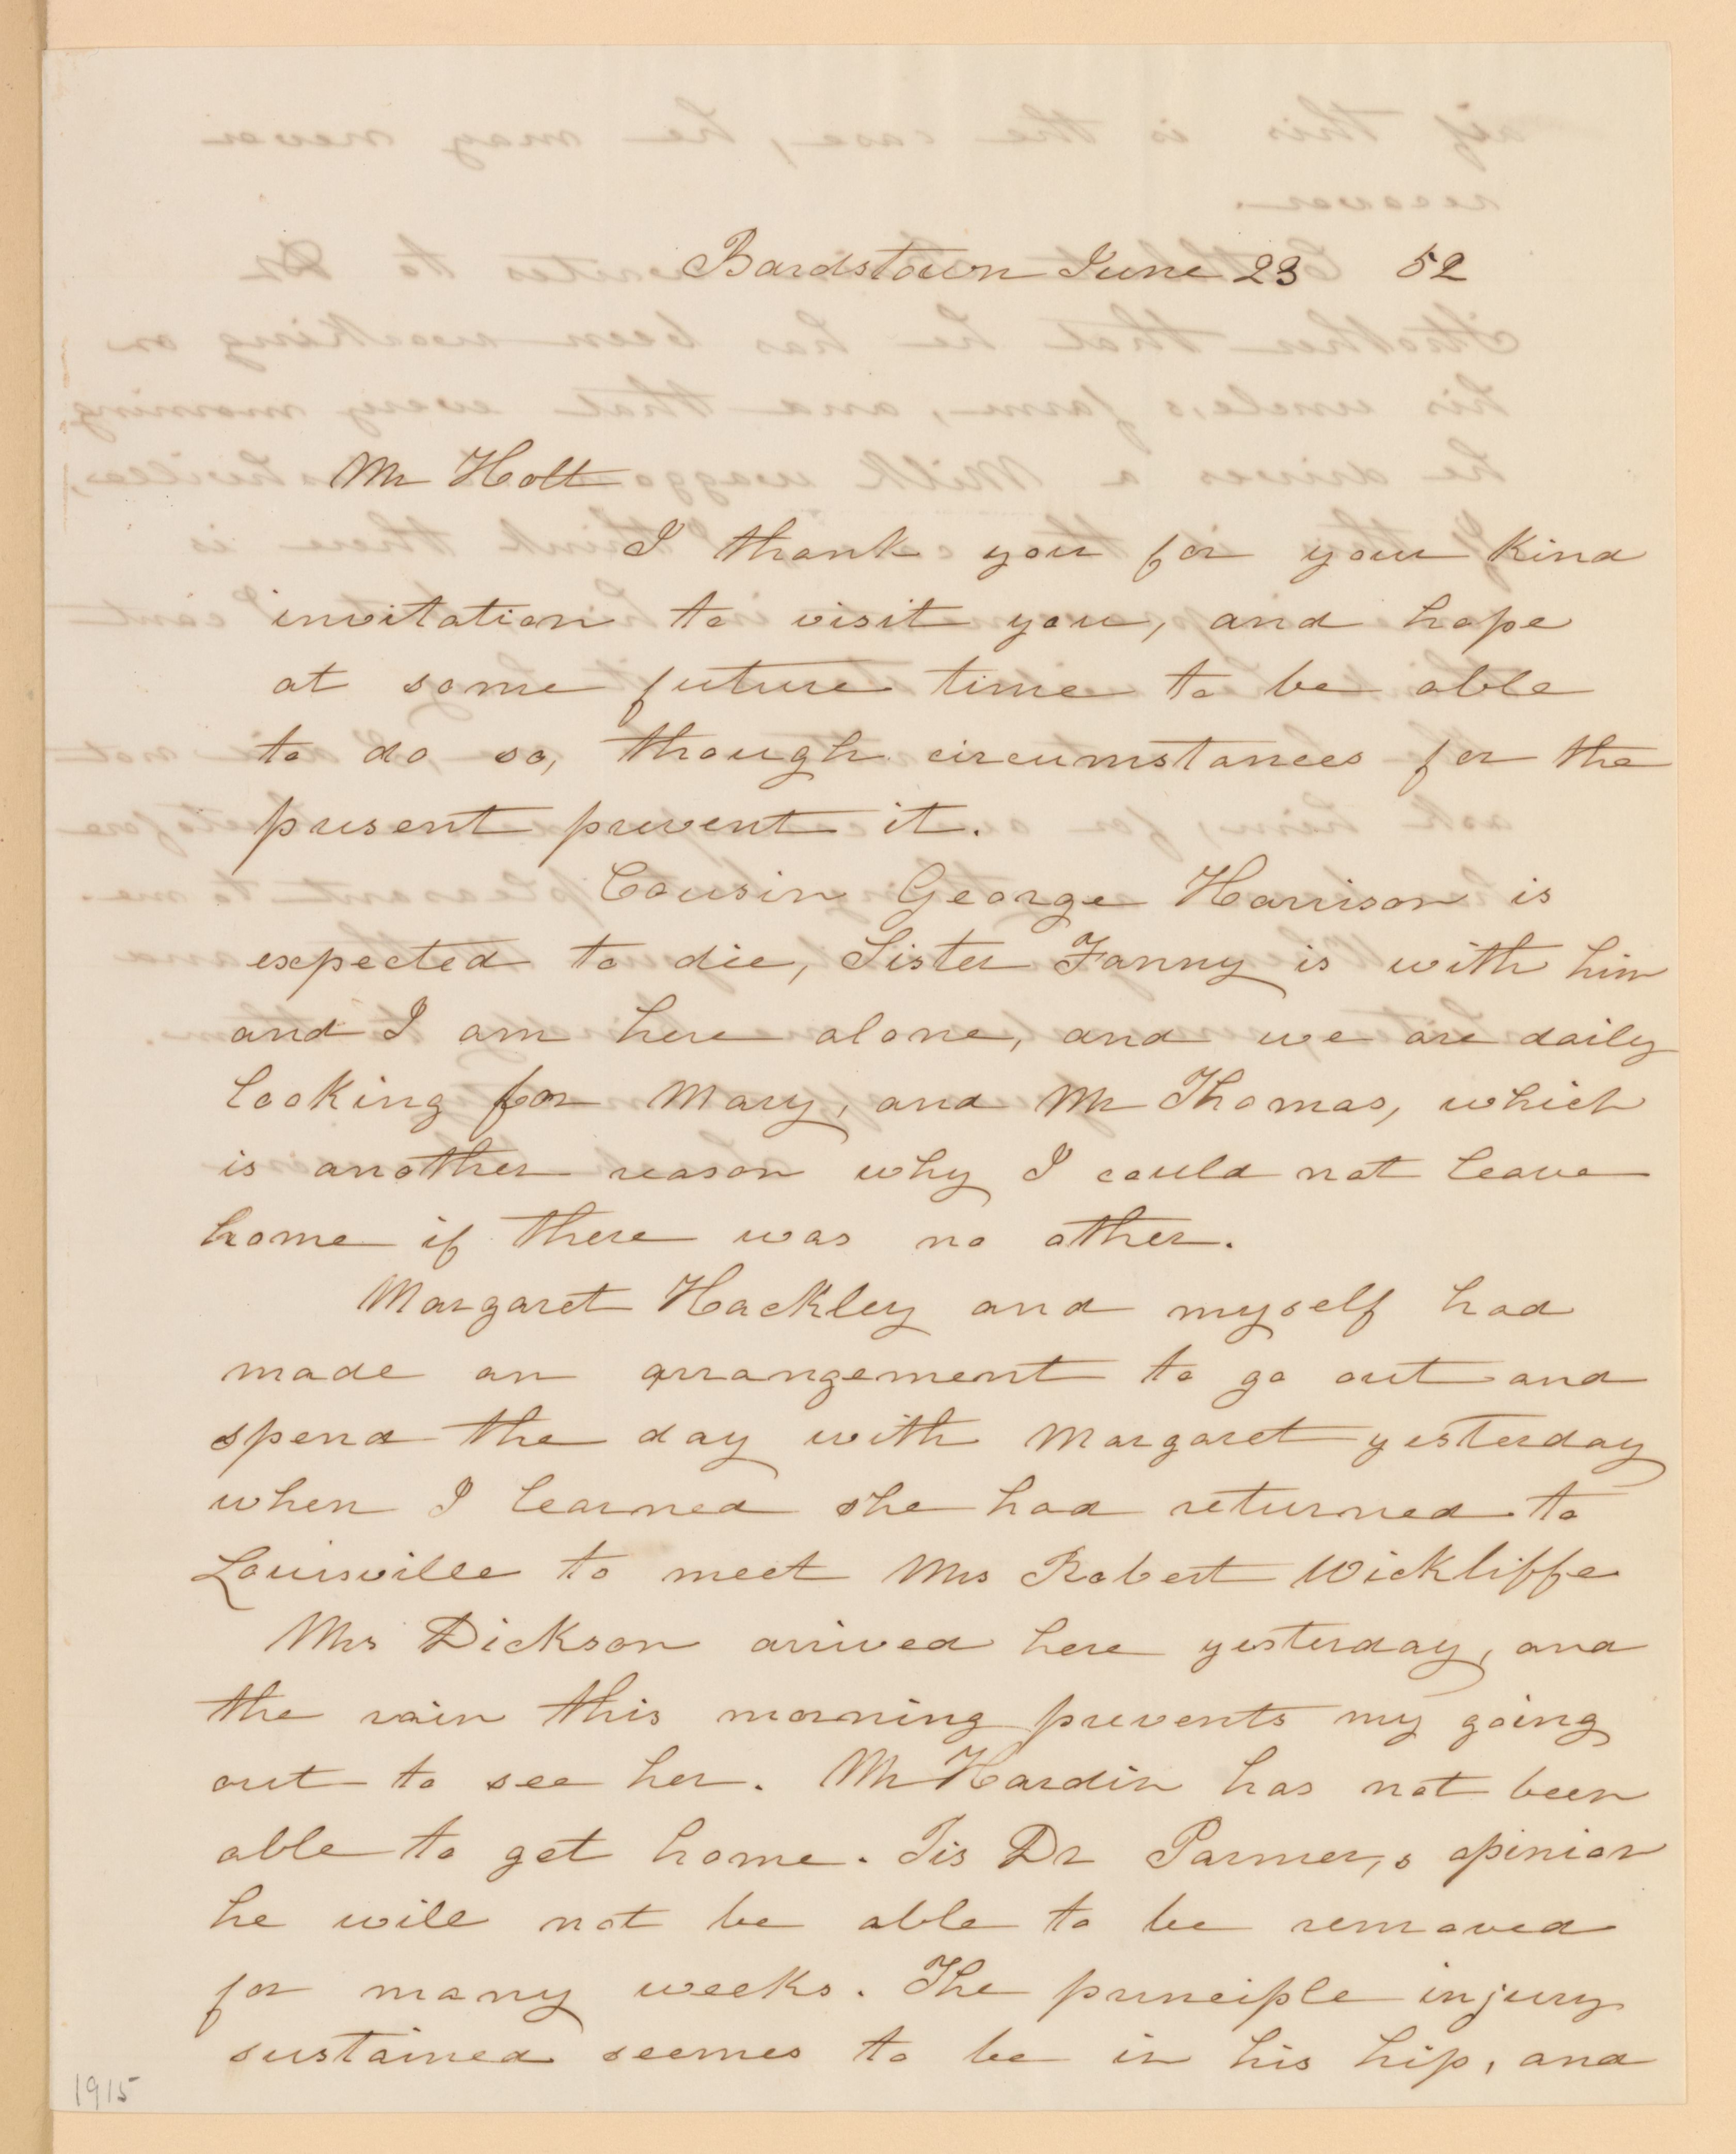 Bardstown June 23 52
Mr Holt
I thank you for your kind
invitation to visit you, and hope
at some future time to be able
to do so, though circumstances for the
present prevent it.
Cousin George Harrison is
expected to die, Sister Fanny is with him
and I am here alone, and we are daily
looking for Mary, and Mr Thomas, which
is another reason why I could not leave
home if there was no other.
Margaret Hackley and myself had
made an arrangement to go out and
spend the day with Margaret yesterday
when I learned she had returned to
Louisville to meet Mrs Robert Wickliffe
Mrs Dickson arrived here yesterday, and
the rain this morning prevents my going
out to see her. Mr Hardin has not been
able to get home. Tis Dr Parmer,s opinion
he will not be able to be removed
for many weeks. The principle injury
sustained seemes to be in his hip, and
1915